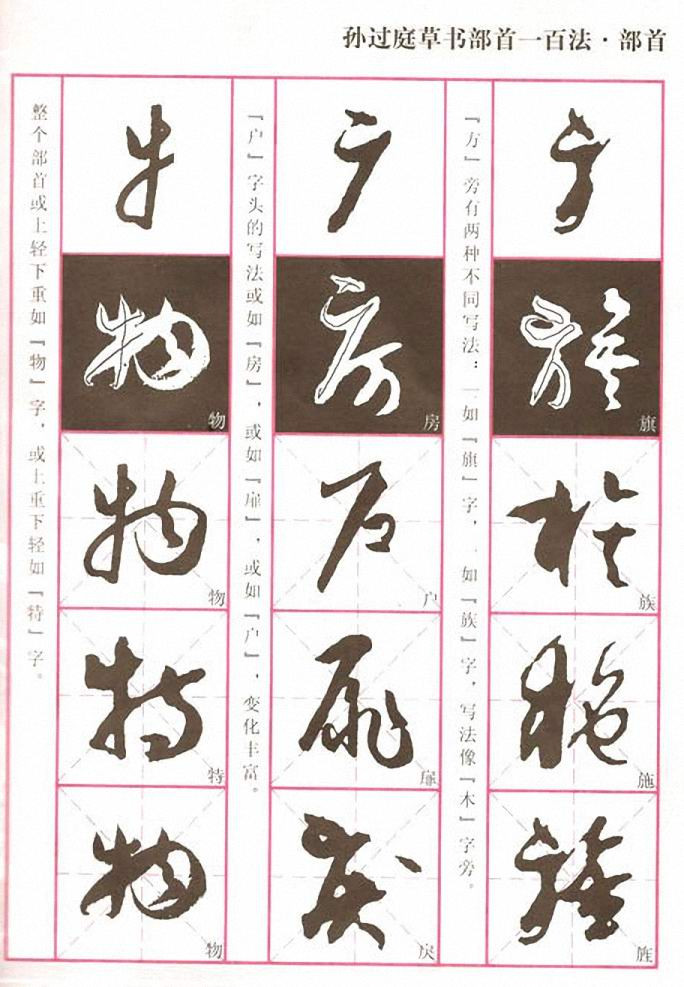 孙过庭草书部首一百法·部首
旗
族
施
旌
『方』旁有两种不同写法：一如『旗』字，一如『族』字，写法像『木』字旁。
房
户
扉
戾
『户』字头的写法或如『房』，或如『扉』，或如『户』，变化丰富。
物
物
特
物
整个部首或上轻下重如『物』字，或上重下轻如『特』字。